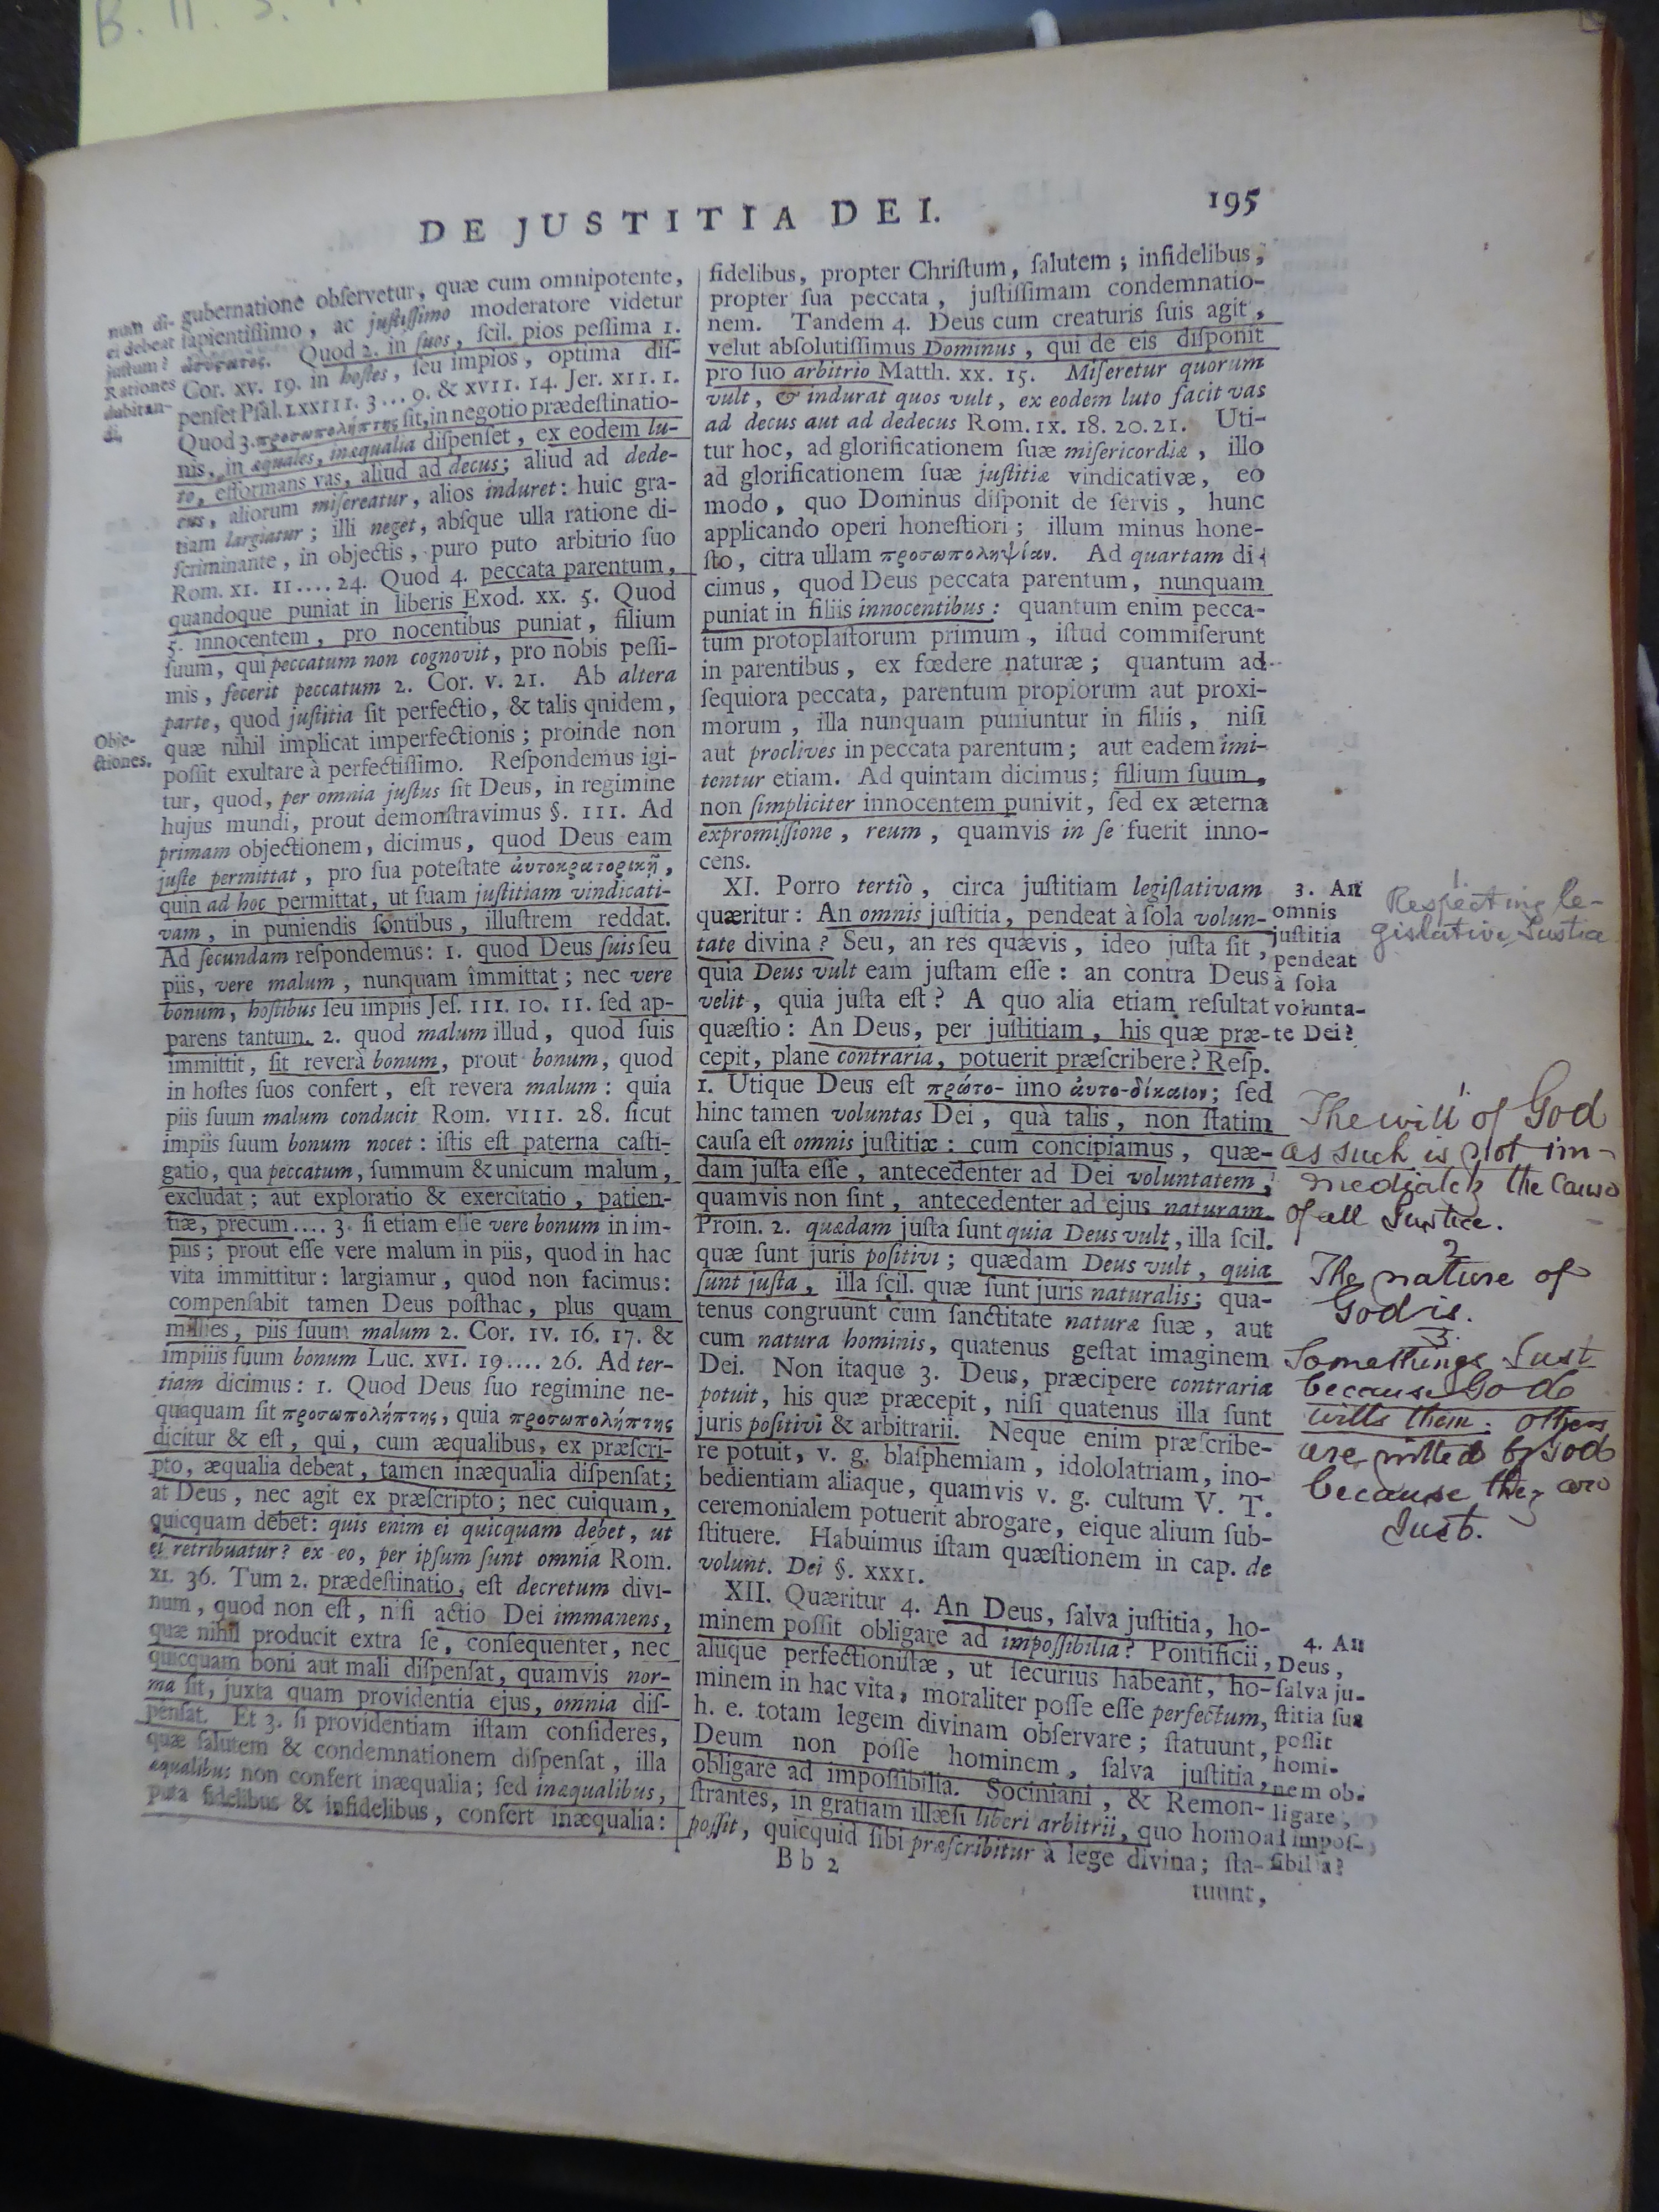 B. II. 5.
DE JUSTITIA DEI.
195
num di-
ei debeat
justum?
Rationes
dubitan-
di.
gubernatione obſervetur, quæ cum omnipotente,
ſapientiſſimo, ac juſtiſſimo moderatore videtur
Quod 2. in ſuos, ſcil. pios peſſima 1.
Cor. xv. 19. in hoſtes, ſeu impios, optima diſ-
penſet Pſal. LXXIII. 3... 9. & XVII. 14. Jer. XII. 1.
Quod 3. προσωπολήπτης ſit, in negotio prædeſtinatio-
nis, in æquales, inæqualia diſpenſet, ex eodem lu-
to, efformans vas, aliud ad decus; aliud ad dede-
cus, aliorum miſereatur, alios induret: huic gra-
tiam largiatur; illi neget, abſque ulla ratione di-
ſcriminante, in objectis, puro puto arbitrio ſuo
Rom. XI. 11.... 24. Quod 4. peccata parentum,
quandoque puniat in liberis Exod. xx. 5. Quod
5. innocentem, pro nocentibus puniat, filium
ſuum, qui peccatum non cognovit, pro nobis peſſi-
mis, fecerit peccatum 2. Cor. v. 21. Ab altera
parte, quod juſtitia ſit perfectio, & talis quidem,
Obje-
ctiones.
quæ nihil implicat imperfectionis; proinde non
poſſit exultare à perfectiſſimo. Reſpondemus igi-
tur, quod, per omnia juſtus ſit Deus, in regimine
hujus mundi, prout demonſtravimus §. III. Ad
primam objectionem, dicimus, quod Deus eam
juſte permittat, pro ſua poteſtate ἀυτοκρατορικῆ,
quin ad hoc permittat, ut ſuam juſtitiam vindicati-
vam, in puniendis ſontibus, illuſtrem reddat.
Ad ſecundam reſpondemus: 1. quod Deus ſuis ſeu
piis, vere malum, nunquam immittat; nec vere
bonum, hoſtibus ſeu impiis Jeſ. III. 10. 11. ſed ap-
parens tantum. 2. quod malum illud, quod ſuis
immittit, ſit reverà bonum, prout bonum, quod
in hoſtes ſuos confert, eſt revera malum: quia
piis ſuum malum conducit Rom. VIII. 28. ſicut
impiis ſuum bonum nocet: iſtis eſt paterna caſti-
gatio, qua peccatum, ſummum & unicum malum,
excludat; aut exploratio & exercitatio, patien-
tiæ, precum.... 3. ſi etiam eſſe vere bonum in im-
piis; prout eſſe vere malum in piis, quod in hac
vita immittitur: largiamur, quod non facimus:
compenſabit tamen Deus poſthac, plus quam
millies, piis ſuum malum 2. Cor. IV. 16. 17. &
impiiis ſuum bonum Luc. XVI. 19.... 26. Ad ter-
tiam dicimus: 1. Quod Deus ſuo regimine ne-
quaquam ſit προσωπολήπτης, quia προσωπολήπτης
dicitur & eſt, qui, cum æqualibus, ex præſcri-
pto, æqualia debeat, tamen inæqualia diſpenſat;
at Deus, nec agit ex præſcripto; nec cuiquam,
quicquam debet: quis enim ei quicquam debet, ut
ei retribuatur? ex eo, per ipſum ſunt omnia Rom.
XI. 36. Tum 2. prædeſtinatio, eſt decretum divi-
num, quod non eſt, niſi actio Dei immanens,
quæ nihil producit extra ſe, conſequenter, nec
quicquam boni aut mali diſpenſat, quamvis nor-
ma ſit, juxta quam providentia ejus, omnia diſ-
penſat. Et 3. ſi providentiam iſtam conſideres,
quæ ſalutem & condemnationem diſpenſat, illa
æqualibus non confert inæqualia; ſed inæqualibus,
puta fidelibus & infidelibus, confert inæqualia:
fidelibus, propter Chriſtum, ſalutem; infidelibus,
propter ſua peccata, juſtiſſimam condemnatio-
nem. Tandem 4. Deus cum creaturis ſuis agit,
velut abſolutiſſimus Dominus, qui de eis diſponit
pro ſuo arbitrio Matth. xx. 15. Miſeretur quorum
vult, & indurat quos vult, ex eodem luto facit vas
ad decus aut ad dedecus Rom. IX. 18. 20. 21. Uti-
tur hoc, ad glorificationem ſuæ miſericordiæ, illo
ad glorificationem ſuæ juſtitiæ vindicativæ, eo
modo, quo Dominus diſponit de ſervis, hunc
applicando operi honeſtiori; illum minus hone-
ſto, citra ullam προσωποληψίαν. Ad quartam di-
cimus, quod Deus peccata parentum, nunquam
puniat in filiis innocentibus: quantum enim pecca-
tum protoplaſtorum primum, iſtud commiſerunt
in parentibus, ex fœdere naturæ; quantum ad
ſequiora peccata, parentum propiorum aut proxi-
morum, illa nunquam puniuntur in filiis, niſi
aut proclives in peccata parentum; aut eadem imi-
tentur etiam. Ad quintam dicimus; filium ſuum,
non ſimpliciter innocentem punivit, ſed ex æterna
expromiſſione, reum, quamvis in ſe fuerit inno-
cens.
XI. Porro tertiò, circa juſtitiam legiſlativam
quæritur: An omnis juſtitia, pendeat à ſola volun-
tate divina? Seu, an res quævis, ideo juſta ſit,
quia Deus vult eam juſtam eſſe: an contra Deus
velit, quia juſta eſt? A quo alia etiam reſultat
quæſtio: An Deus, per juſtitiam, his quæ præ-
cepit, plane contraria, potuerit præſcribere? Reſp.
1. Utique Deus eſt πρώτο- imo ἀυτο-δίκαιον; ſed
hinc tamen voluntas Dei, quà talis, non ſtatim
cauſa eſt omnis juſtitiæ: cum concipiamus, quæ-
dam juſta eſſe, antecedenter ad Dei voluntatem,
quamvis non ſint, antecedenter ad ejus naturam.
Proin. 2. quædam juſta ſunt quia Deus vult, illa ſcil.
quæ ſunt juris poſitivi; quædam Deus vult, quia
ſunt juſta, illa ſcil. quæ ſunt juris naturalis; qua-
tenus congruunt cum ſanctitate naturæ ſuæ, aut
cum natura hominis, quatenus geſtat imaginem
Dei. Non itaque 3. Deus, præcipere contraria
potuit, his quæ præcepit, niſi quatenus illa ſunt
juris poſitivi & arbitrarii. Neque enim præſcribe-
re potuit, v. g. blaſphemiam, idololatriam, ino-
bedientiam aliaque, quamvis v. g. cultum V. T.
ceremonialem potuerit abrogare, eique alium ſub-
ſtituere. Habuimus iſtam quæſtionem in cap. de
volunt. Dei §. XXXI.
XII. Quæritur 4. An Deus, ſalva juſtitia, ho-
minem poſſit obligare ad impoſſibilia? Pontificii,
aliique perfectioniſtæ, ut ſecurius habeant, ho-
minem in hac vita, moraliter poſſe eſſe perfectum,
h. e. totam legem divinam obſervare; ſtatuunt,
Deum non poſſe hominem, ſalva juſtitia,
obligare ad impoſſibilia. Sociniani, & Remon-
ſtrantes, in gratiam illæſi liberi arbitrii, quo homo
poſſit, quicquid ſibi præſcribitur à lege divina; ſta-
B b 2
tuunt,
3. An
omnis
juſtitia
pendeat
à ſola
volunta-
te Dei?
4. An
Deus,
ſalva ju-
ſtitia ſua
poſſit
homi-
nem ob-
ligare,
ad impoſ-
ſibilia?
1.
Respecting le-
gislative Justice
1
The will of God
as such is not im-
mediately the cause
of all Justice.
2
The nature of
God is.
3.
Some things Just
because God
wills them: others
are willed by God
because they are
Just.